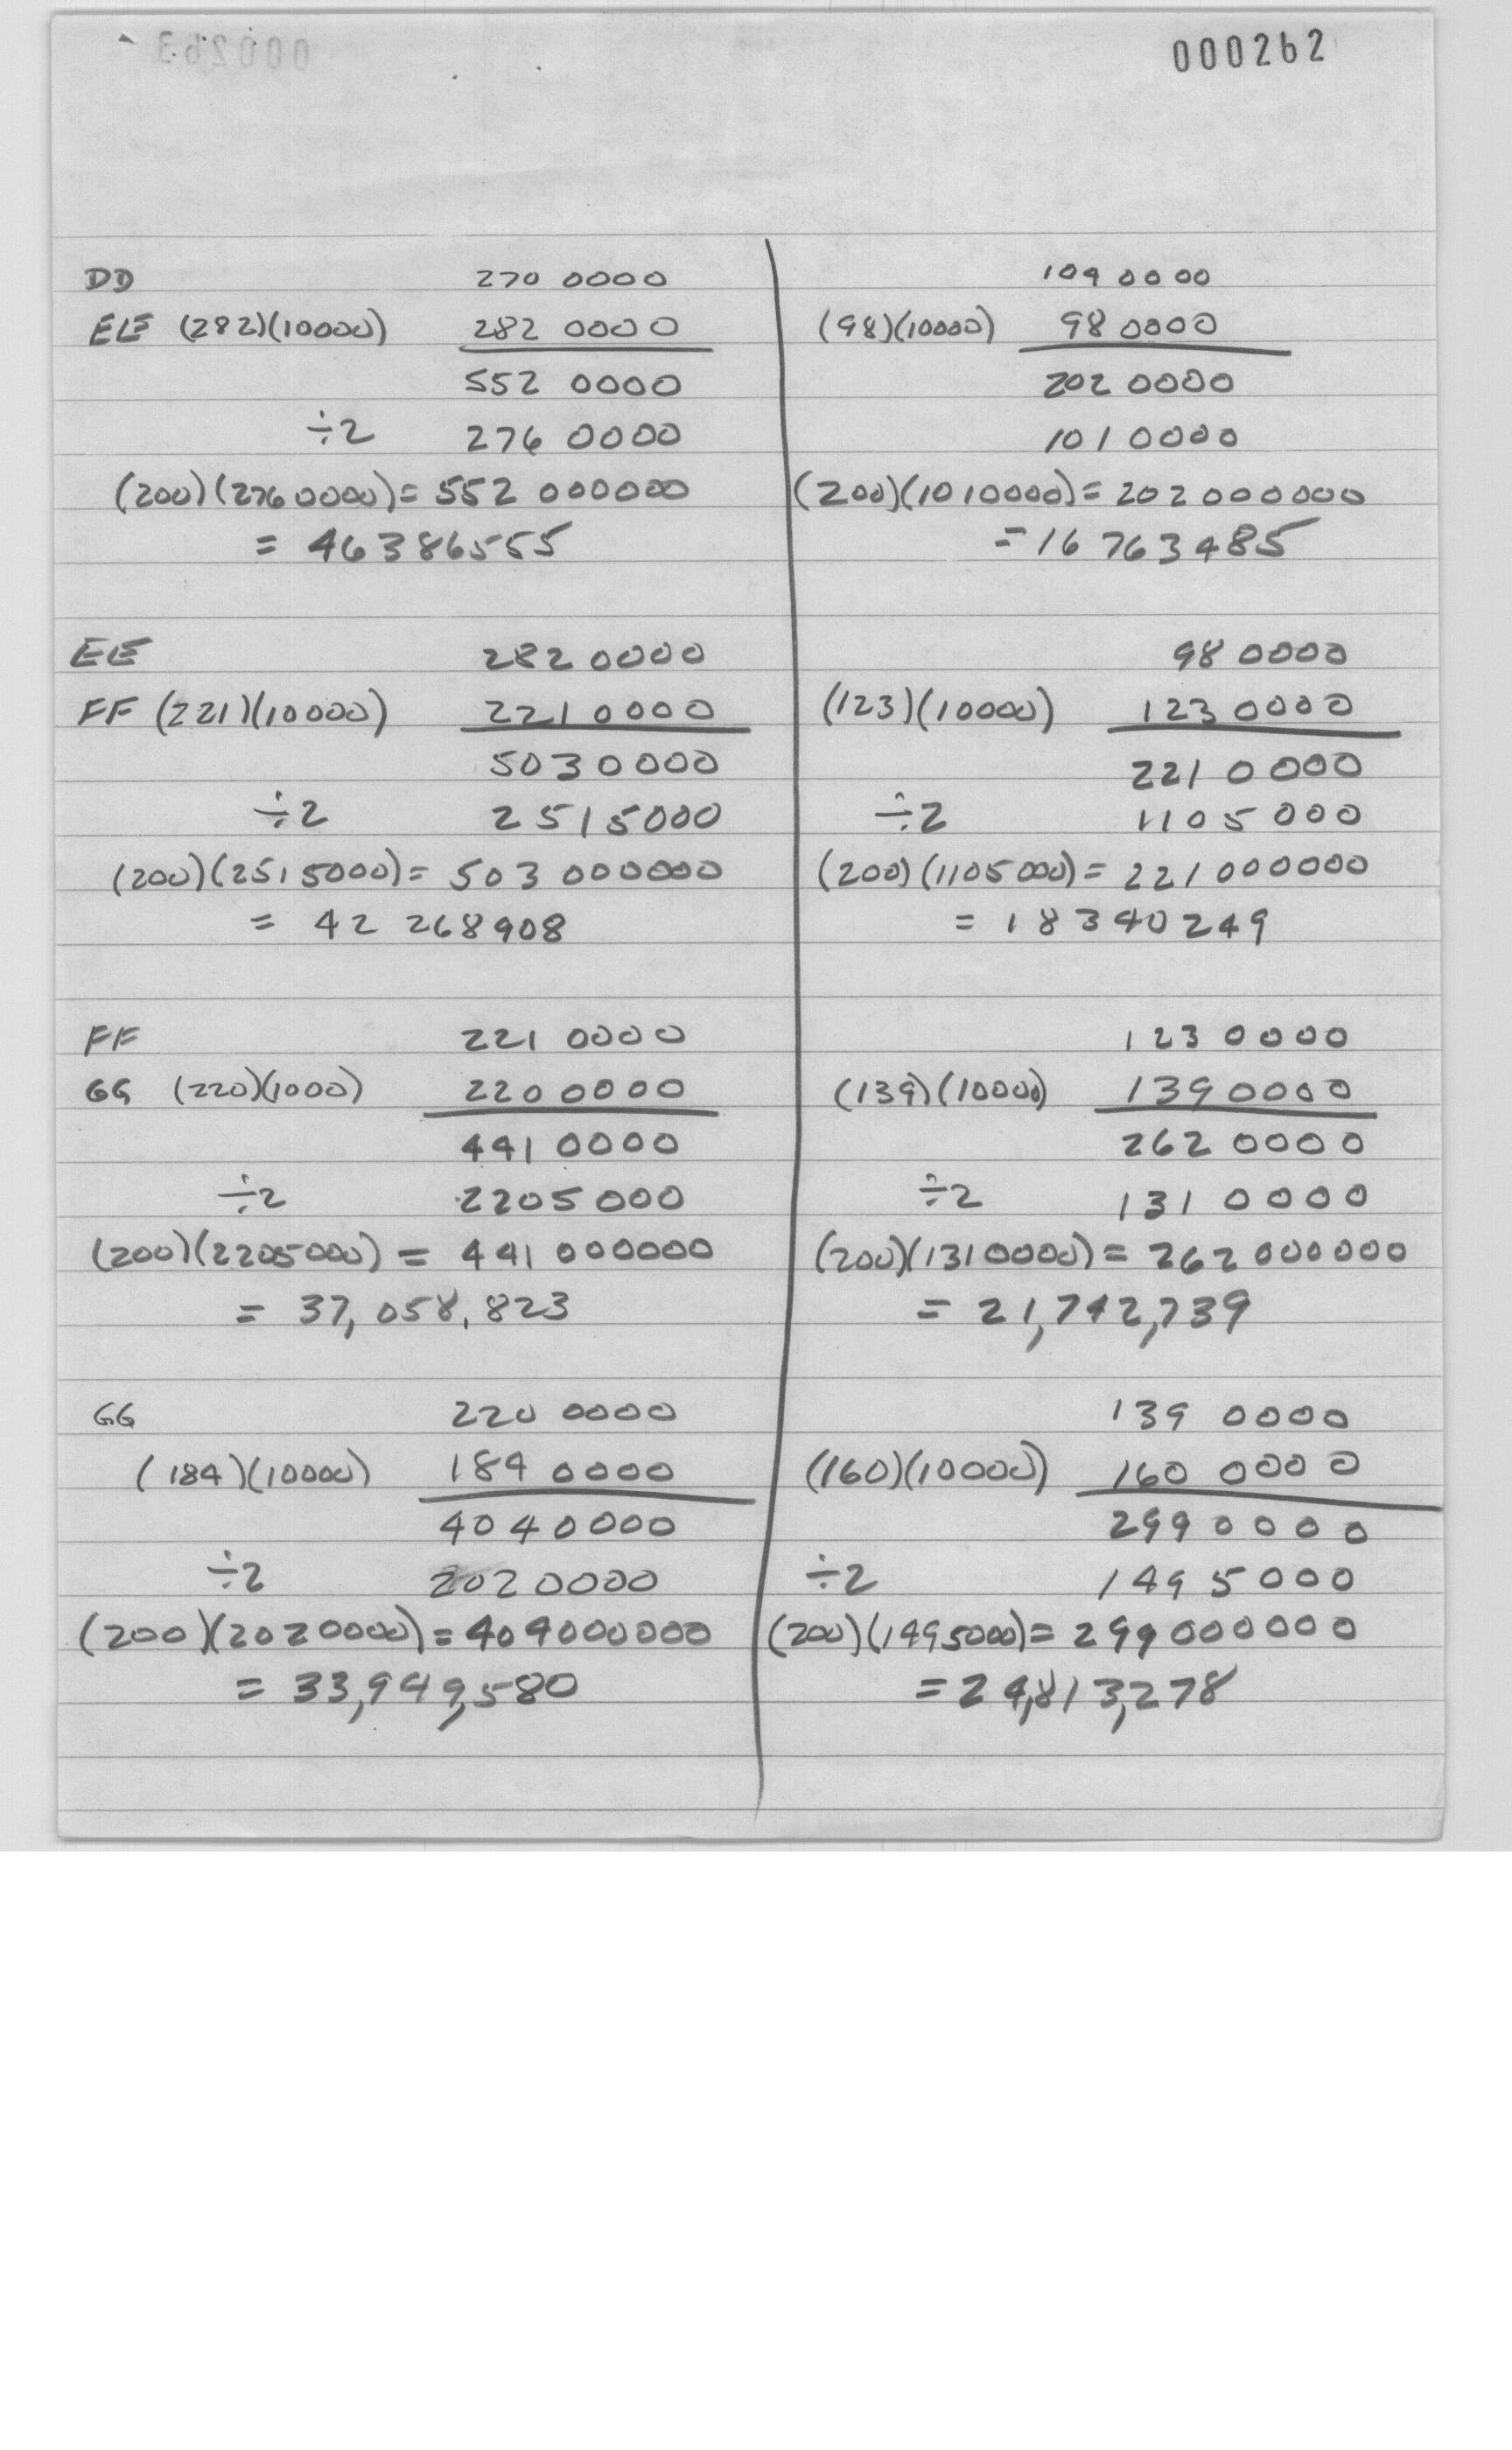 000262
DD 270 0000
EE (282)(10000) 282 0000
552 0000
÷2 276 0000
(200)(2760000)= 552 000000
= 46386555
EE 282 0000
FF (221)(10000) 221 0000
5030000
÷2 2515000
(200)(2515000)= 503 000000
= 42 268908
FF 221 0000
GG (220)(1000) 220 0000
441 0000
÷2 2205 000
(200)(2205000) = 441 000000
= 37,058,823
GG 220 0000
(184)(10000) 184 0000
4040000
÷2 2020000
(200)(2020000)=404000000
= 33,949,580
104 0000
(98)(10000) 98 0000
202 0000
101 0000
(200)(1010000)= 202 000000
=16 763485
98 0000
(123)(10000) 123 0000
221 0000
÷2 1105 000
(200)(1105000)= 221000000
= 18340249
123 0000
(139)(10000) 139 0000
262 0000
÷2 131 0000
(200)(1310000)= 262 000000
= 21,742,739
139 0000
(160)(10000) 160 0000
299 0000
÷2 1495000
(200)(1495000)= 299000000
=24,813,278